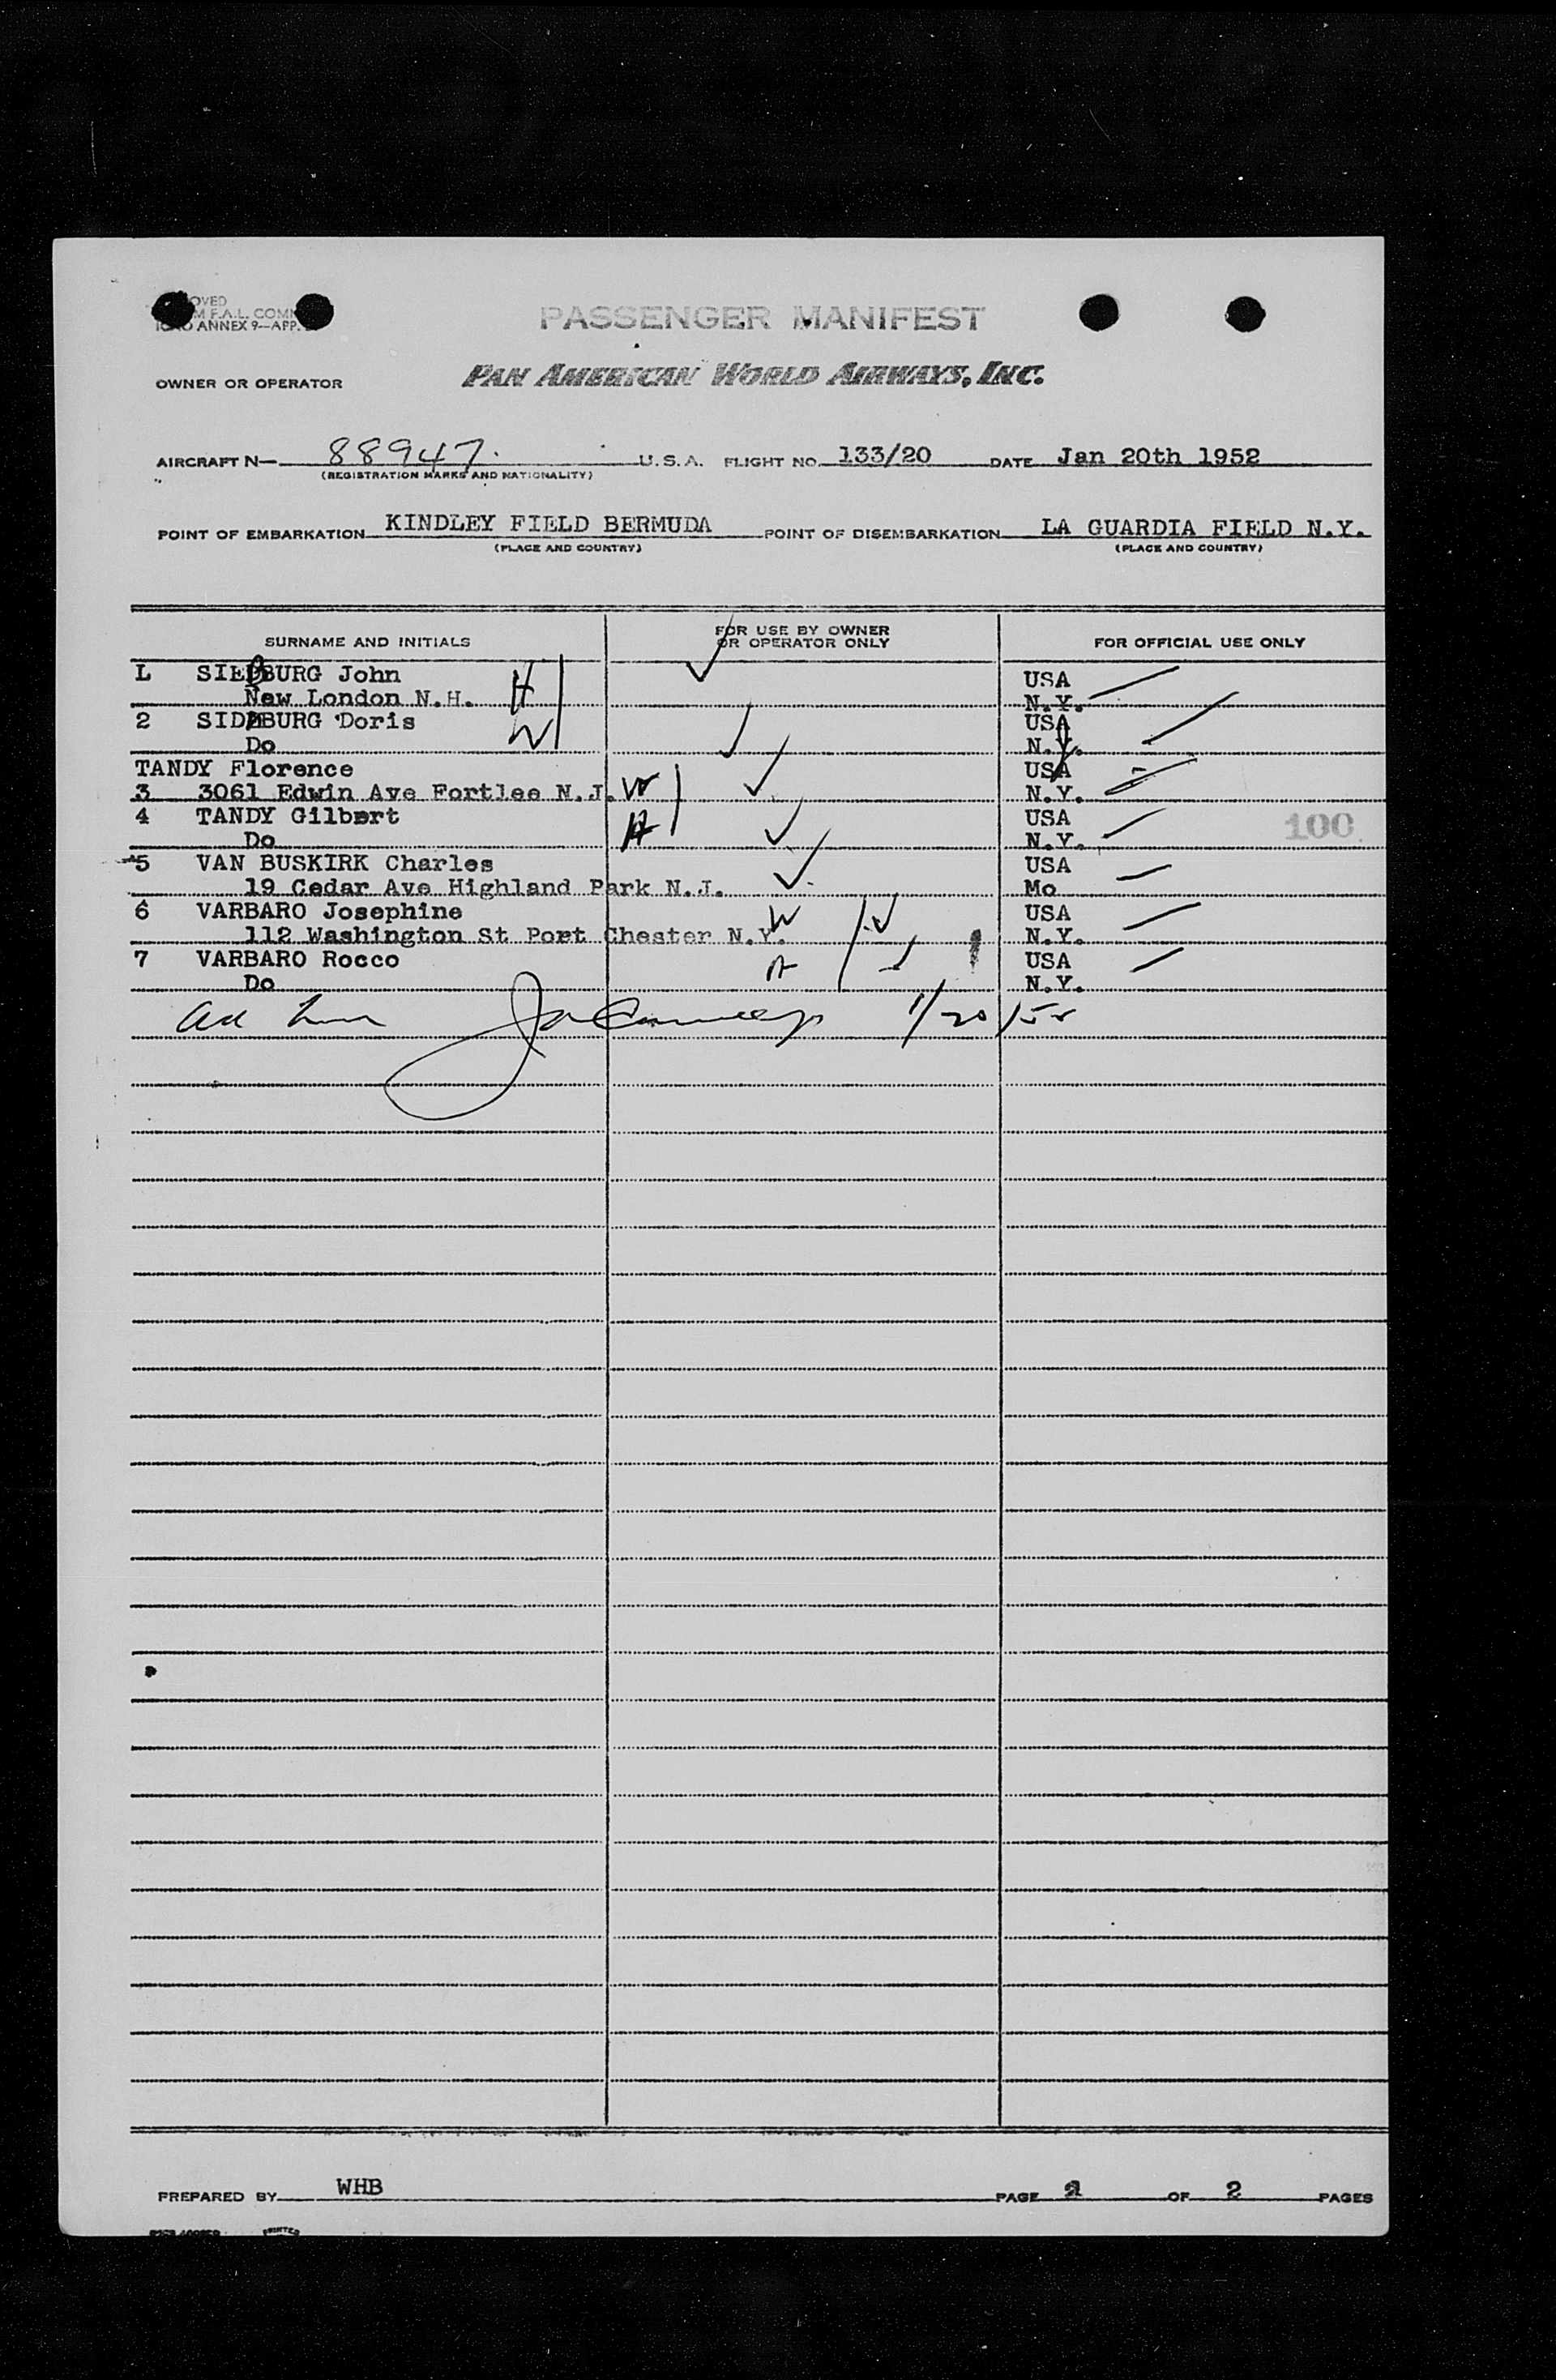 PASSENGER MANIFEST
ANNEX 9—APP.
OWNER OR OPERATOR PAN AMERICAN WORLD AIRWAYS, INC.
AIRCRAFT N— 88947. U.S.A. FLIGHT NO. 133/20 DATE Jan 20th 1952
(REGISTRATION MARKS AND NATIONALITY)
POINT OF EMBARKATION KINDLEY FIELD BERMUDA POINT OF DISEMBARKATION LA GUARDIA FIELD N.Y.
(PLACE AND COUNTRY) (PLACE AND COUNTRY)
SURNAME AND INITIALS FOR USE BY OWNER OR OPERATOR ONLY FOR OFFICIAL USE ONLY
L John H USA
New London N.H. N.Y.
2 Doris W USA
Do N.Y.
TANDY Florence USA
3 3061 Edwin Ave Fortlee N.J. W N.Y.
4 TANDY Gilbert H USA 100
Do N.Y.
5 VAN BUSKIRK Charles USA
19 Cedar Ave Highland Park N.J. Mo
6 VARBARO Josephine W USA
112 Washington St Port Chester N.Y. N.Y.
7 VARBARO Rocco H USA
Do N.Y.
1/20/52
PREPARED BY WHB PAGE 2 OF 2 PAGES